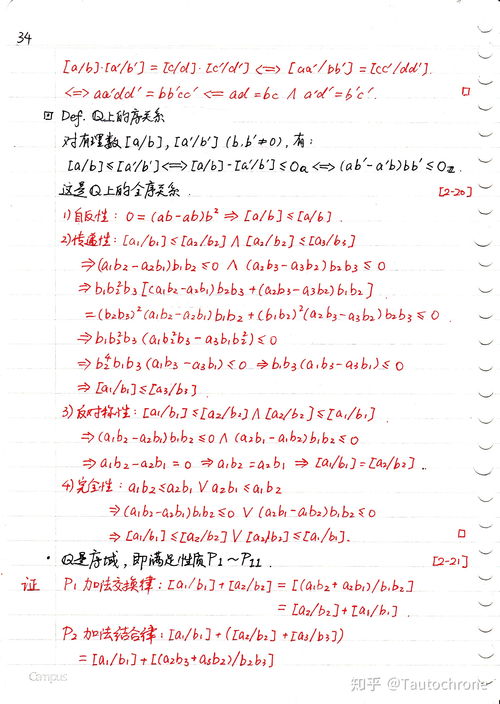 34
[a/b]·[a'/b'] = [c/d]·[c'/d'] <=> [aa'/bb'] = [cc'/dd'].
<=> aa'dd' = bb'cc' <= ad = bc ∧ a'd' = b'c'. □
Def. Q上的序关系
对有理数[a/b],[a'/b'] (b,b'≠0),有:
[a/b] ≤ [a'/b'] <=> [a/b] - [a'/b'] ≤ 0Q <=> (ab'-a'b)bb' ≤ 0Z.
这是Q上的全序关系. [2-20]
1)自反性: 0 = (ab-ab)b² ⇒ [a/b] ≤ [a/b].
2)传递性: [a₁/b₁] ≤ [a₂/b₂] ∧ [a₂/b₂] ≤ [a₃/b₃]
⇒ (a₁b₂-a₂b₁)b₁b₂ ≤ 0 ∧ (a₂b₃-a₃b₂)b₂b₃ ≤ 0
⇒ b₁b₂²b₃[(a₁b₂-a₂b₁)b₂b₃ + (a₂b₃-a₃b₂)b₁b₂]
= (b₂b₃)²(a₁b₂-a₂b₁)b₁b₂ + (b₁b₂)²(a₂b₃-a₃b₂)b₂b₃ ≤ 0.
⇒ b₁b₂²b₃(a₁b₂²b₃ - a₃b₁b₂²) ≤ 0
⇒ b₂⁴b₁b₃(a₁b₃-a₃b₁) ≤ 0 ⇒ b₁b₃(a₁b₃-a₃b₁) ≤ 0
⇒ [a₁/b₁] ≤ [a₃/b₃]
3)反对称性: [a₁/b₁] ≤ [a₂/b₂] ∧ [a₂/b₂] ≤ [a₁/b₁]
⇒ (a₁b₂-a₂b₁)b₁b₂ ≤ 0 ∧ (a₂b₁-a₁b₂)b₁b₂ ≤ 0
⇒ a₁b₂-a₂b₁ = 0 ⇒ a₁b₂ = a₂b₁ ⇒ [a₁/b₁] = [a₂/b₂].
4)完全性: a₁b₂ ≤ a₂b₁ ∨ a₂b₁ ≤ a₁b₂
⇒ (a₁b₂-a₂b₁)b₁b₂ ≤ 0 ∨ (a₂b₁-a₁b₂)b₁b₂ ≤ 0
⇒ [a₁/b₁] ≤ [a₂/b₂] ∨ [a₂/b₂] ≤ [a₁/b₁]. □
· Q是序域,即满足性质P1~P11. [2-21]
证 P1 加法交换律: [a₁/b₁] + [a₂/b₂] = [(a₁b₂+a₂b₁)/b₁b₂]
= [a₂/b₂] + [a₁/b₁].
P2 加法结合律: [a₁/b₁] + ([a₂/b₂] + [a₃/b₃])
= [a₁/b₁] + [(a₂b₃+a₃b₂)/b₂b₃]
Campus
知乎 @Tautochrone